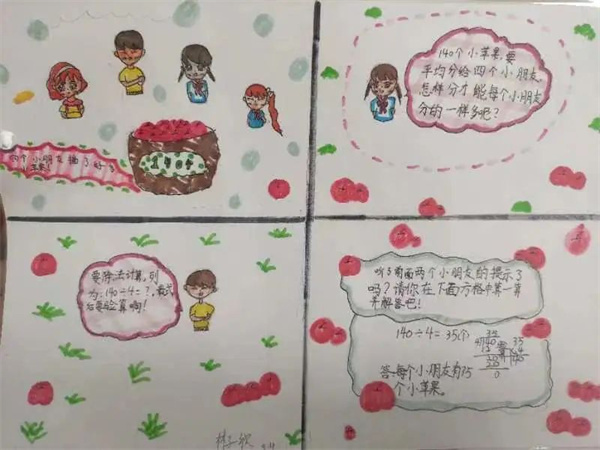 四个小朋友摘了好多
140个小苹果,要
平均分给四个小朋友,
怎样分才能每个小朋友
分的一样多呢?
要除法计算,列
为:140÷4=?,最后
别忘验算啊!
听了前面两个小朋友的提示了
吗?请你在下面方格中算一算
并解答吧!
140÷4=35个
35
4 140
12
20
20
0
35
× 4
140
答:每个小朋友有35
个小苹果。